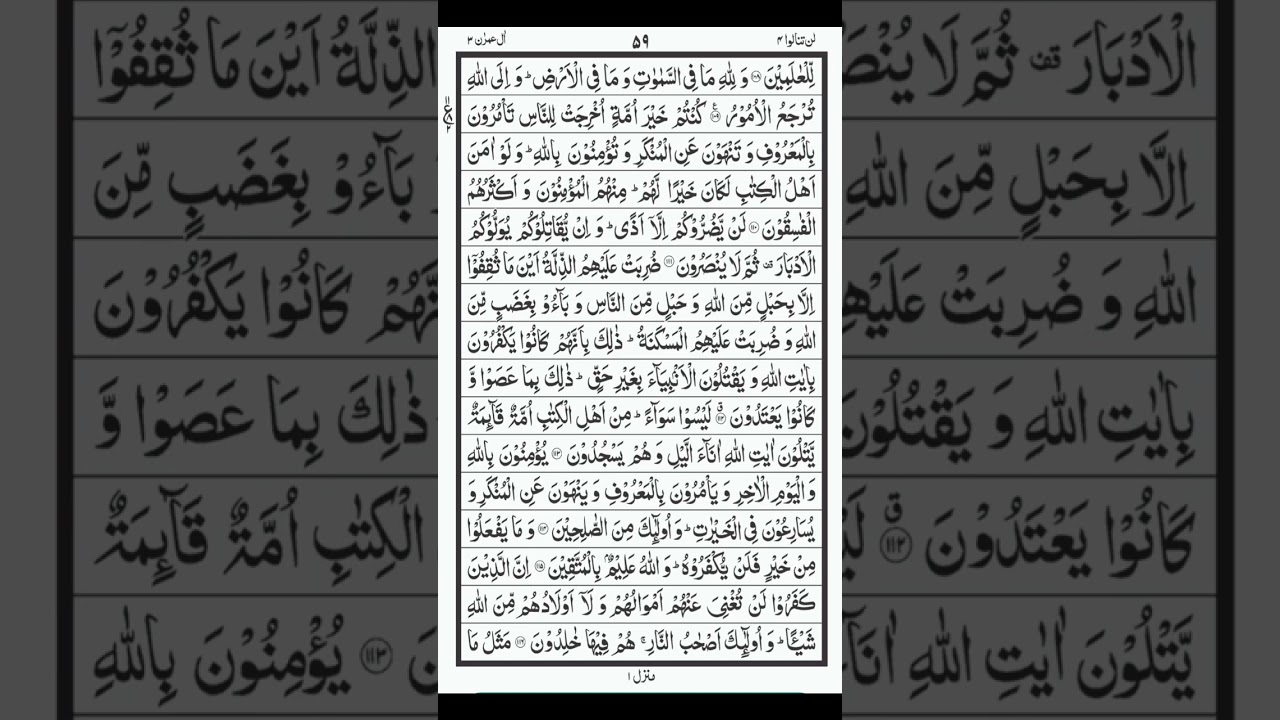 لن تنالوا ۴ ۵۹ اٰل عمرٰن ۳
لِّلْعٰلَمِيْنَ ۝۱۰۸ وَ لِلّٰهِ مَا فِي السَّمٰوٰتِ وَ مَا فِي الْاَرْضِ ؕ وَ اِلَى اللّٰهِ
تُرْجَعُ الْاُمُوْرُ ۝۱۰۹ كُنْتُمْ خَيْرَ اُمَّةٍ اُخْرِجَتْ لِلنَّاسِ تَاْمُرُوْنَ
بِالْمَعْرُوْفِ وَ تَنْهَوْنَ عَنِ الْمُنْكَرِ وَ تُؤْمِنُوْنَ بِاللّٰهِ ؕ وَ لَوْ اٰمَنَ
اَهْلُ الْكِتٰبِ لَكَانَ خَيْرًا لَّهُمْ ؕ مِنْهُمُ الْمُؤْمِنُوْنَ وَ اَكْثَرُهُمُ
الْفٰسِقُوْنَ ۝۱۱۰ لَنْ يَّضُرُّوْكُمْ اِلَّاۤ اَذًى ؕ وَ اِنْ يُّقَاتِلُوْكُمْ يُوَلُّوْكُمُ
الْاَدْبَارَ قف ثُمَّ لَا يُنْصَرُوْنَ ۝۱۱۱ ضُرِبَتْ عَلَيْهِمُ الذِّلَّةُ اَيْنَ مَا ثُقِفُوْۤا
اِلَّا بِحَبْلٍ مِّنَ اللّٰهِ وَ حَبْلٍ مِّنَ النَّاسِ وَ بَآءُوْ بِغَضَبٍ مِّنَ
اللّٰهِ وَ ضُرِبَتْ عَلَيْهِمُ الْمَسْكَنَةُ ؕ ذٰلِكَ بِاَنَّهُمْ كَانُوْا يَكْفُرُوْنَ
بِاٰيٰتِ اللّٰهِ وَ يَقْتُلُوْنَ الْاَنْۢبِيَآءَ بِغَيْرِ حَقٍّ ؕ ذٰلِكَ بِمَا عَصَوْا وَّ
كَانُوْا يَعْتَدُوْنَ ۝۱۱۲ لَيْسُوْا سَوَآءً ؕ مِنْ اَهْلِ الْكِتٰبِ اُمَّةٌ قَآىِٕمَةٌ
يَّتْلُوْنَ اٰيٰتِ اللّٰهِ اٰنَآءَ الَّيْلِ وَ هُمْ يَسْجُدُوْنَ ۝۱۱۳ يُؤْمِنُوْنَ بِاللّٰهِ
وَ الْيَوْمِ الْاٰخِرِ وَ يَاْمُرُوْنَ بِالْمَعْرُوْفِ وَ يَنْهَوْنَ عَنِ الْمُنْكَرِ وَ
يُسَارِعُوْنَ فِي الْخَيْرٰتِ ؕ وَ اُولٰٓىِٕكَ مِنَ الصّٰلِحِيْنَ ۝۱۱۴ وَ مَا يَفْعَلُوْا
مِنْ خَيْرٍ فَلَنْ يُّكْفَرُوْهُ ؕ وَ اللّٰهُ عَلِيْمٌۢ بِالْمُتَّقِيْنَ ۝۱۱۵ اِنَّ الَّذِيْنَ
كَفَرُوْا لَنْ تُغْنِيَ عَنْهُمْ اَمْوَالُهُمْ وَ لَاۤ اَوْلَادُهُمْ مِّنَ اللّٰهِ
شَيْـًٔا ؕ وَ اُولٰٓىِٕكَ اَصْحٰبُ النَّارِ ۚ هُمْ فِيْهَا خٰلِدُوْنَ ۝۱۱۶ مَثَلُ مَا
منزل ۱